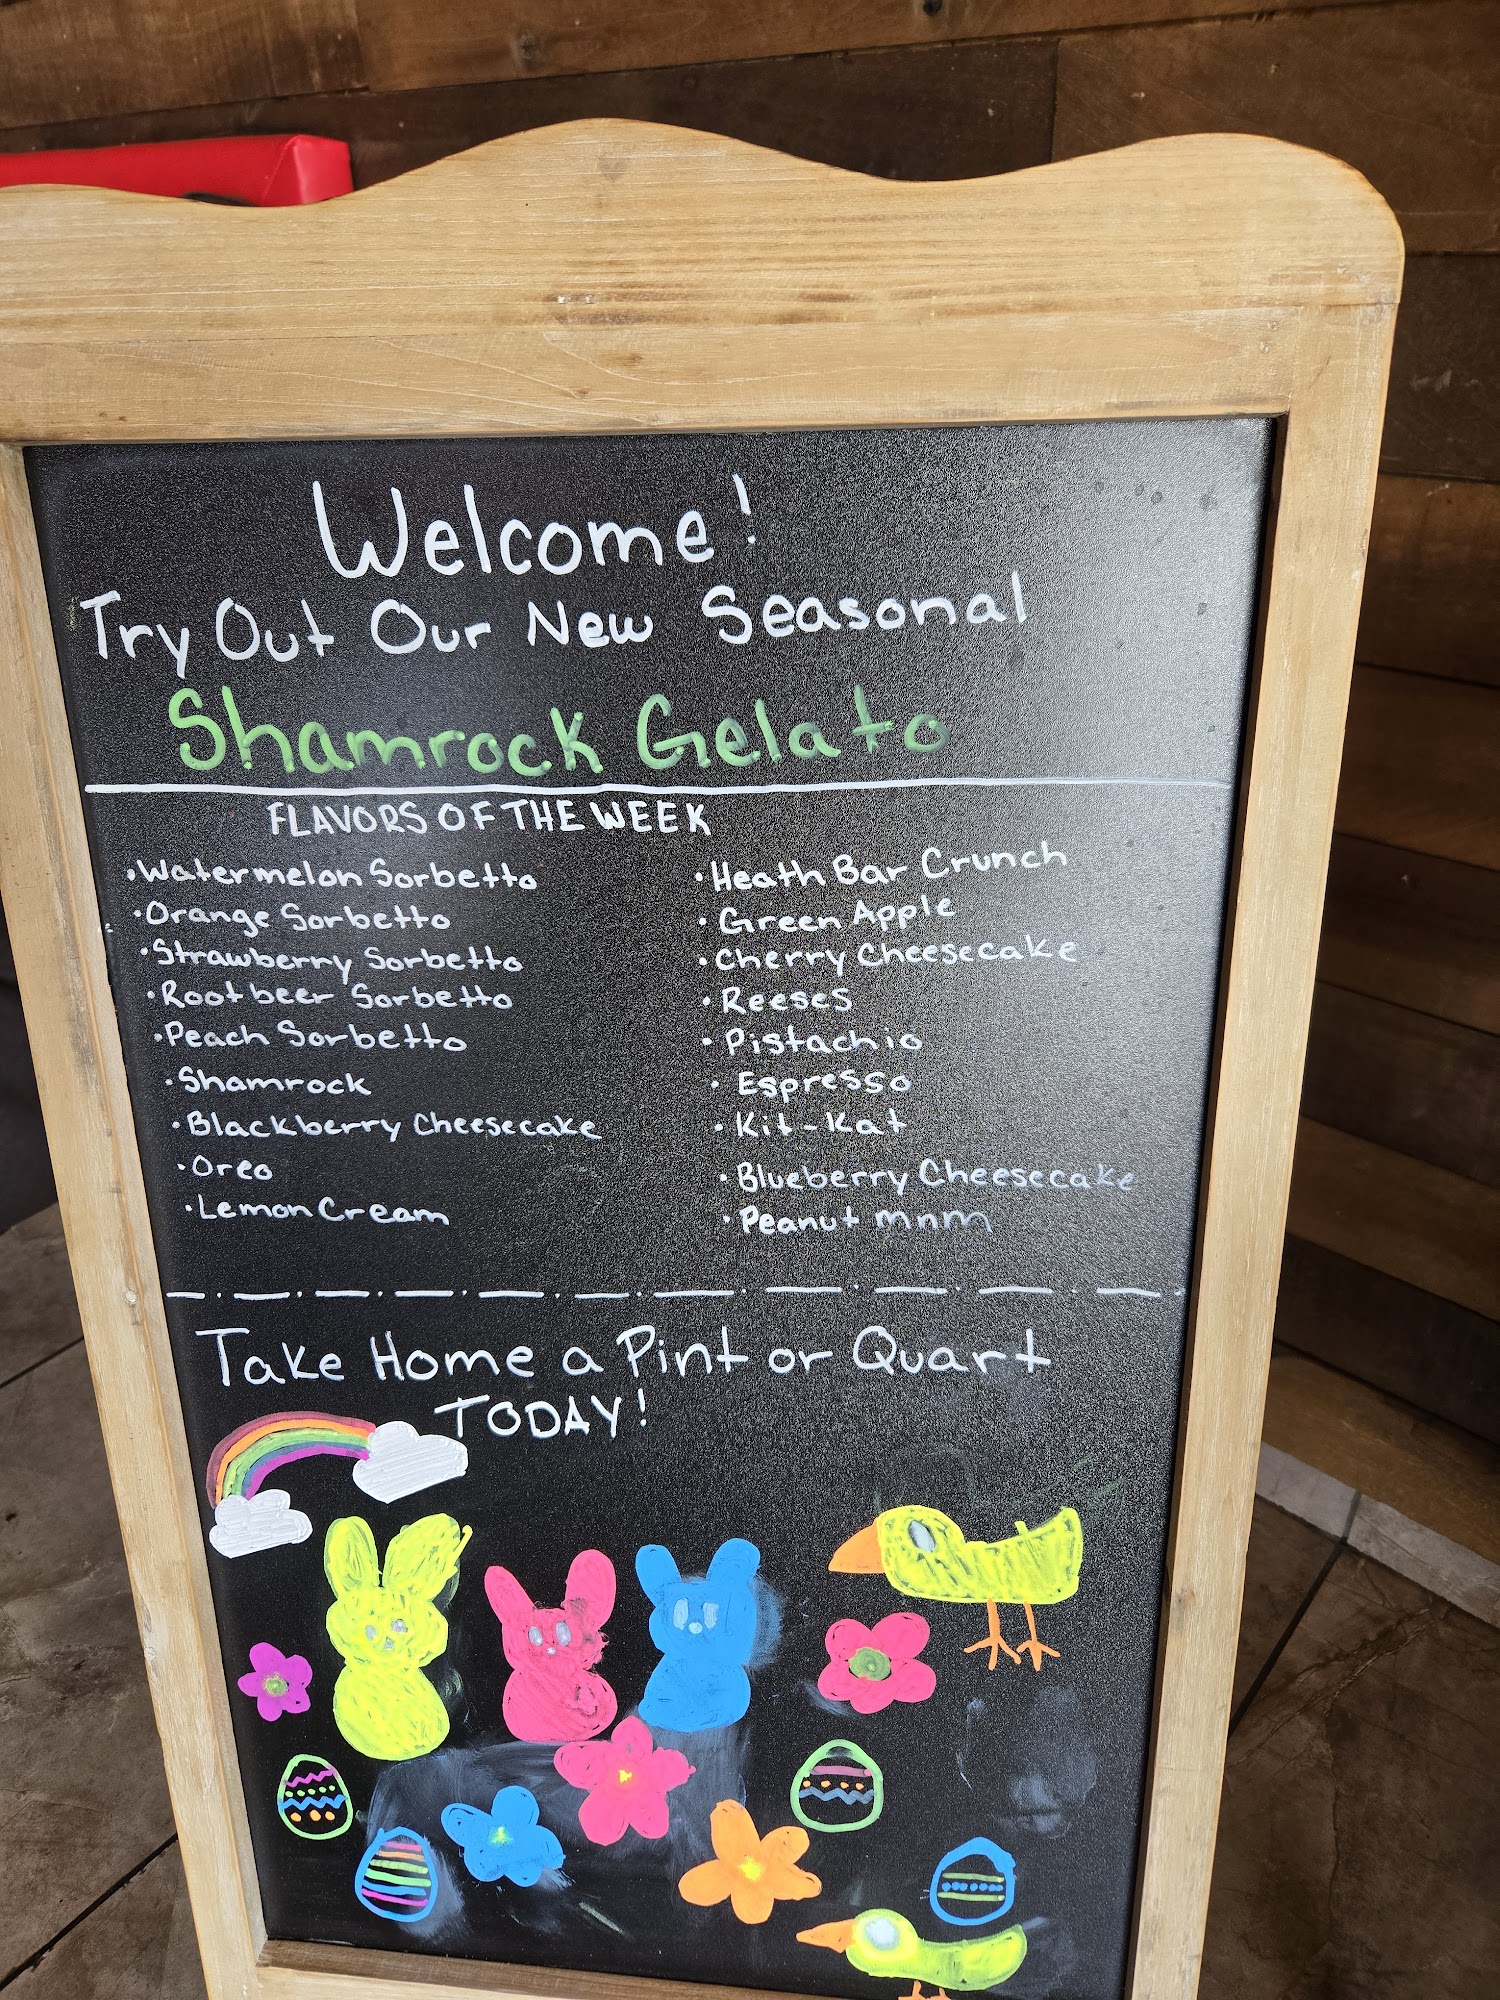 Welcome!
Try Out Our New Seasonal
Shamrock Gelato
FLAVORS OF THE WEEK
•Watermelon Sorbetto
•Orange Sorbetto
•Strawberry Sorbetto
•Rootbeer Sorbetto
•Peach Sorbetto
•Shamrock
•Blackberry Cheesecake
•Oreo
•Lemon Cream
•Heath Bar Crunch
•Green Apple
•Cherry Cheesecake
•Reeses
•Pistachio
•Espresso
•Kit-Kat
•Blueberry Cheesecake
•Peanut mnm
Take Home a Pint or Quart
TODAY!